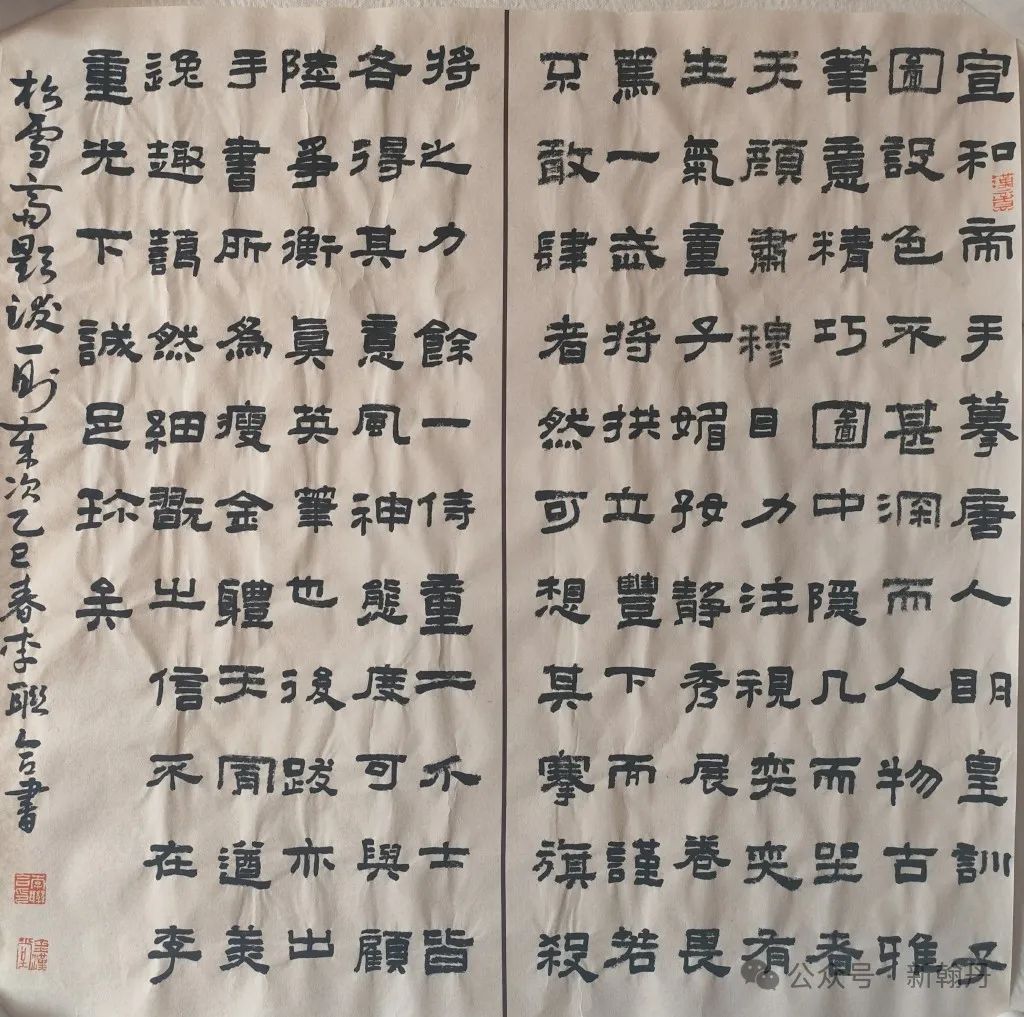 宣和帝手摹唐人明皇訓子
圖設色不甚深而人物古雅
筆意精巧圖中隱几而坐者
天顏肅穆目力注視奕奕有
生氣重子媚好靜秀展卷畏
罵一武將拱立豐下而謹若
不敢肆者然可想其搴旗殺
將之力餘一侍重二介士皆
各得其意風神態度可與顧
陸爭衡真英筆也後跋亦出
手書所為瘦金體天遒美
逸趣藹然細翫之信不在李
重光下誠足珎矣
松雪齋題跋一則歲次乙巳春李聯合書
公众号·新翰丹